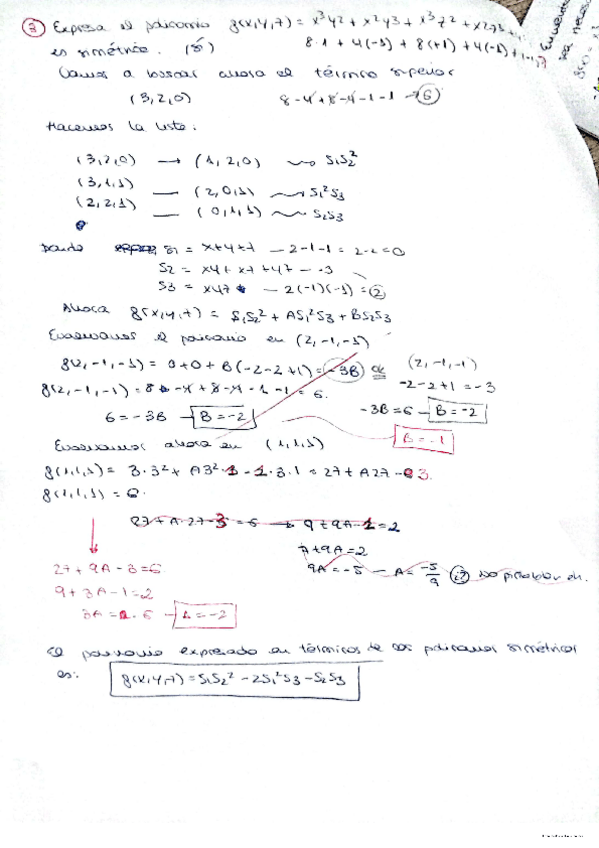 ③ Expresa el polinomio g(x,y,z) = x³y² + x²y³ + x³z² + x²z³ +
es simétrico. (sí) 8·1 + 4(-1) + 8(+1) + 4(-1) + (-1) -1
Vamos a buscar ahora el término superior
(3,2,0) 8-4+8-4-1-1 → 6
Hacemos la lista:
(3,2,0) → (1,2,0) ⟿ S₁S₂²
(3,1,1) — (2,0,1) ⟿ S₁²S₃
(2,2,1) — (0,1,1) ⟿ S₂S₃
Donde S₁ = x+y+z — 2-1-1 = 2-2=0
S₂ = xy + xz + yz — -3
S₃ = xyz — 2(-1)(-1) = 2
Ahora g(x,y,z) = S₁S₂² + AS₁²S₃ + BS₂S₃
Evaluamos el polinomio en (2,-1,-1)
g(2,-1,-1) = 0+0+B(-2-2+1) = -3B (2,-1,-1)
g(2,-1,-1) = 8-4+8-4-1-1 = 6. -2-2+1 = -3
6 = -3B — B=-2 -3B=6 — B=-2
B=-1
Evaluamos ahora en (1,1,1)
g(1,1,1) = 3·3² + A3²·1 - 1·3·1 = 27 + A27 - 3.
g(1,1,1) = 6.
27+A·27-3 = 6 → 9+9A-1=2
7+9A=2
27+9A-3=6 9A=-5 — A=-5/9 ¿?
9+3A-1=2
3A= -6 — A=-2
El polinomio expresado en términos de los polinomios simétricos
es: g(x,y,z) = S₁S₂² - 2S₁²S₃ - S₂S₃